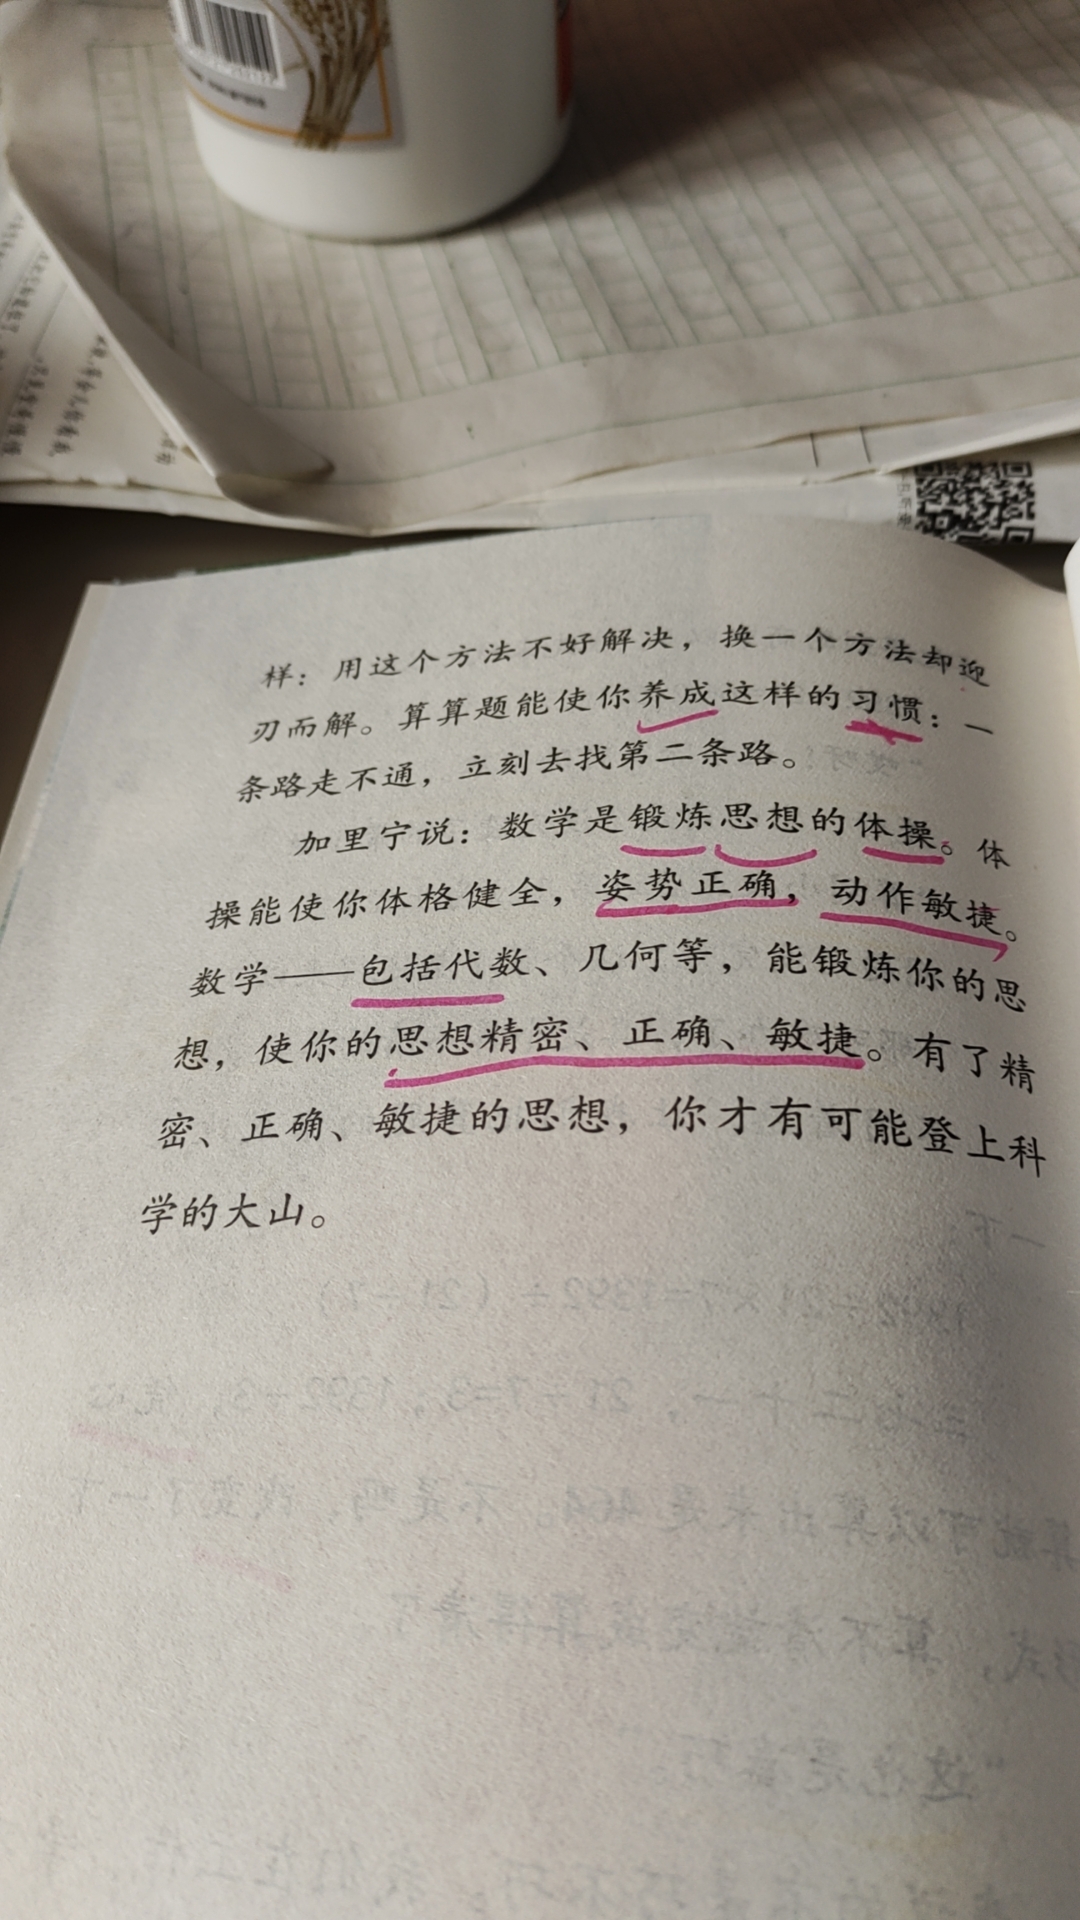 样：用这个方法不好解决，换一个方法却迎
刃而解。算算题能使你养成这样的习惯：一
条路走不通，立刻去找第二条路。
加里宁说：数学是锻炼思想的体操。体
操能使你体格健全，姿势正确，动作敏捷。
数学——包括代数、几何等，能锻炼你的思
想，使你的思想精密、正确、敏捷。有了精
密、正确、敏捷的思想，你才有可能登上科
学的大山。